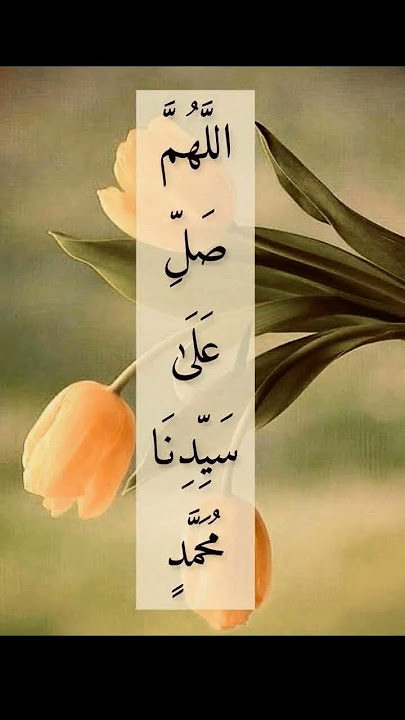 اللَّهُمَّ
صَلِّ
عَلَىٰ
سَيِّدِنَا
مُحَمَّدٍ